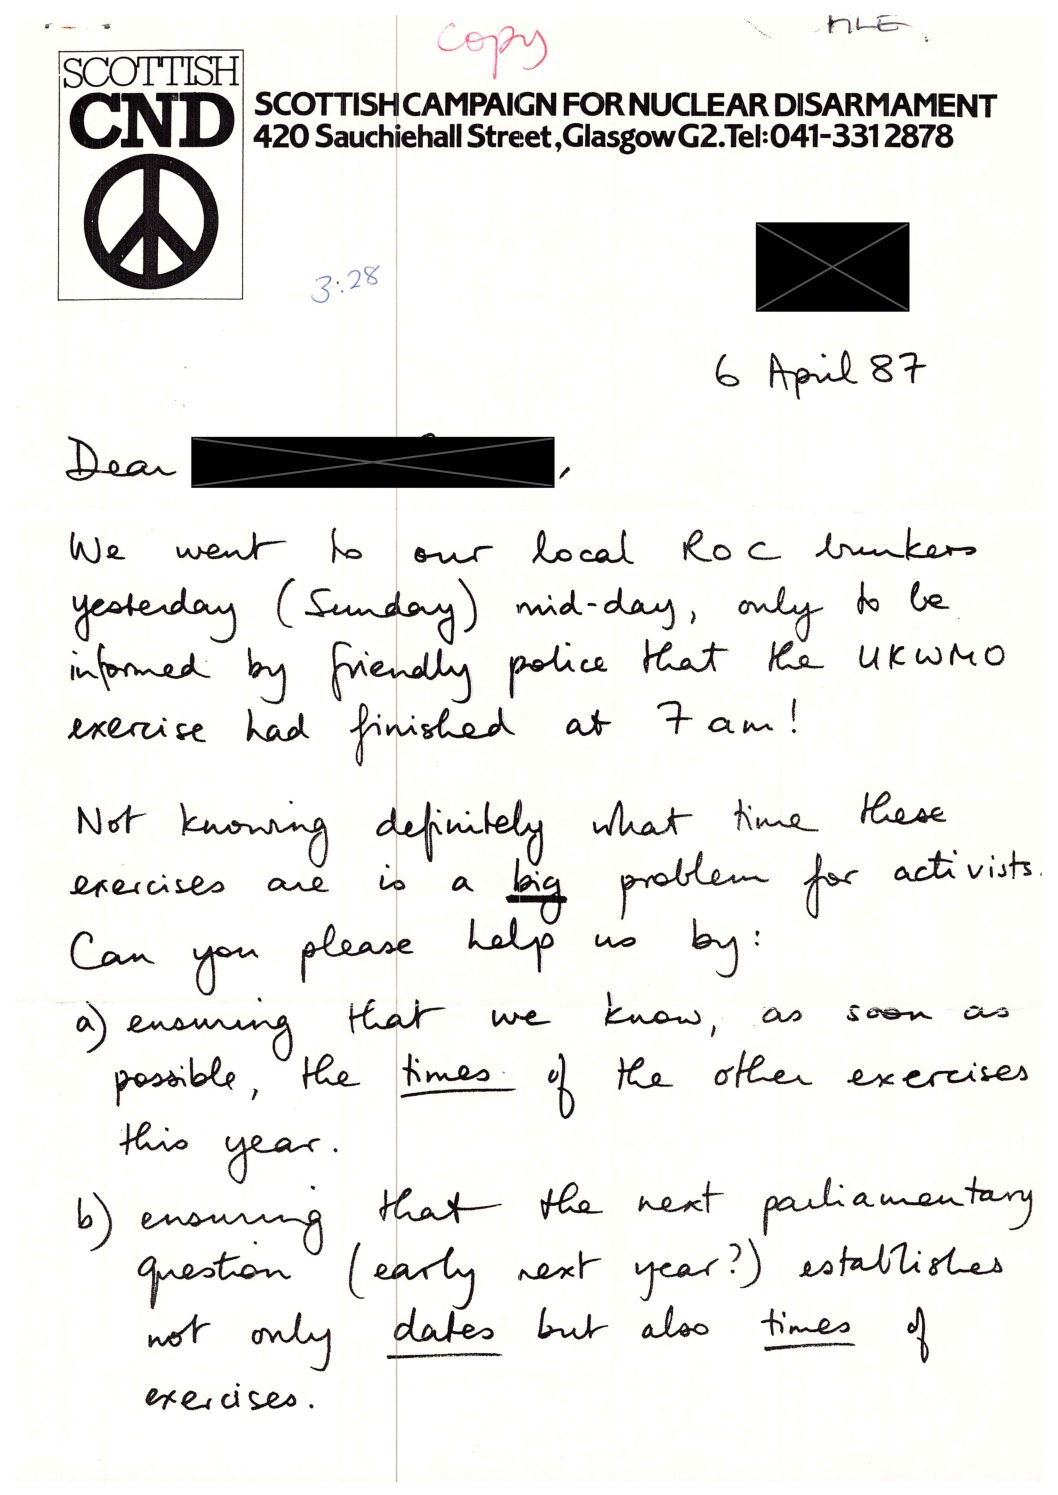 Copy
FILE.
SCOTTISH
CND
SCOTTISH CAMPAIGN FOR NUCLEAR DISARMAMENT
420 Sauchiehall Street, Glasgow G2. Tel: 041-331 2878
3:28
6 April 87
Dear ,
We went to our local ROC bunkers
yesterday (Sunday) mid-day, only to be
informed by friendly police that the UKWMO
exercise had finished at 7 am!
Not knowing definitely what time these
exercises are is a big problem for activists.
Can you please help us by:
a) ensuring that we know, as soon as
possible, the times of the other exercises
this year.
b) ensuring that the next parliamentary
question (early next year?) establishes
not only dates but also times of
exercises.